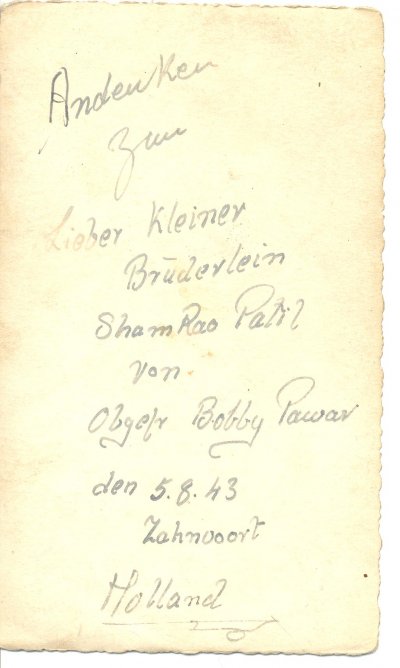 Andenken
zum
Lieber Kleiner
Brüderlein
ShamRao Patil
von
Obgefr Bobby Pawar
den 5.8.43
Zahnvoort
Holland